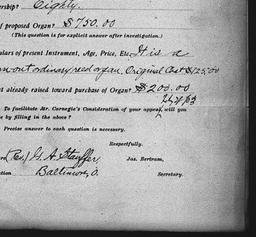 ership? Eighty.
of proposed Organ? $750.00
(This question is for explicit answer after investigation.)
ulars of present Instrument, Age, Price, Etc. It is a
ordinary reed organ. Original Cost $125.00
t already raised toward purchase of Organ? $200.00
To facilitate Mr. Carnegie's Consideration of your appeal, will you
e by filling in the above?
Precise answer to each question is necessary.
Respectfully,
(Rev.) G. A. Stauffer, Jas. Bertram,
tion Baltimore, O. Secretary.